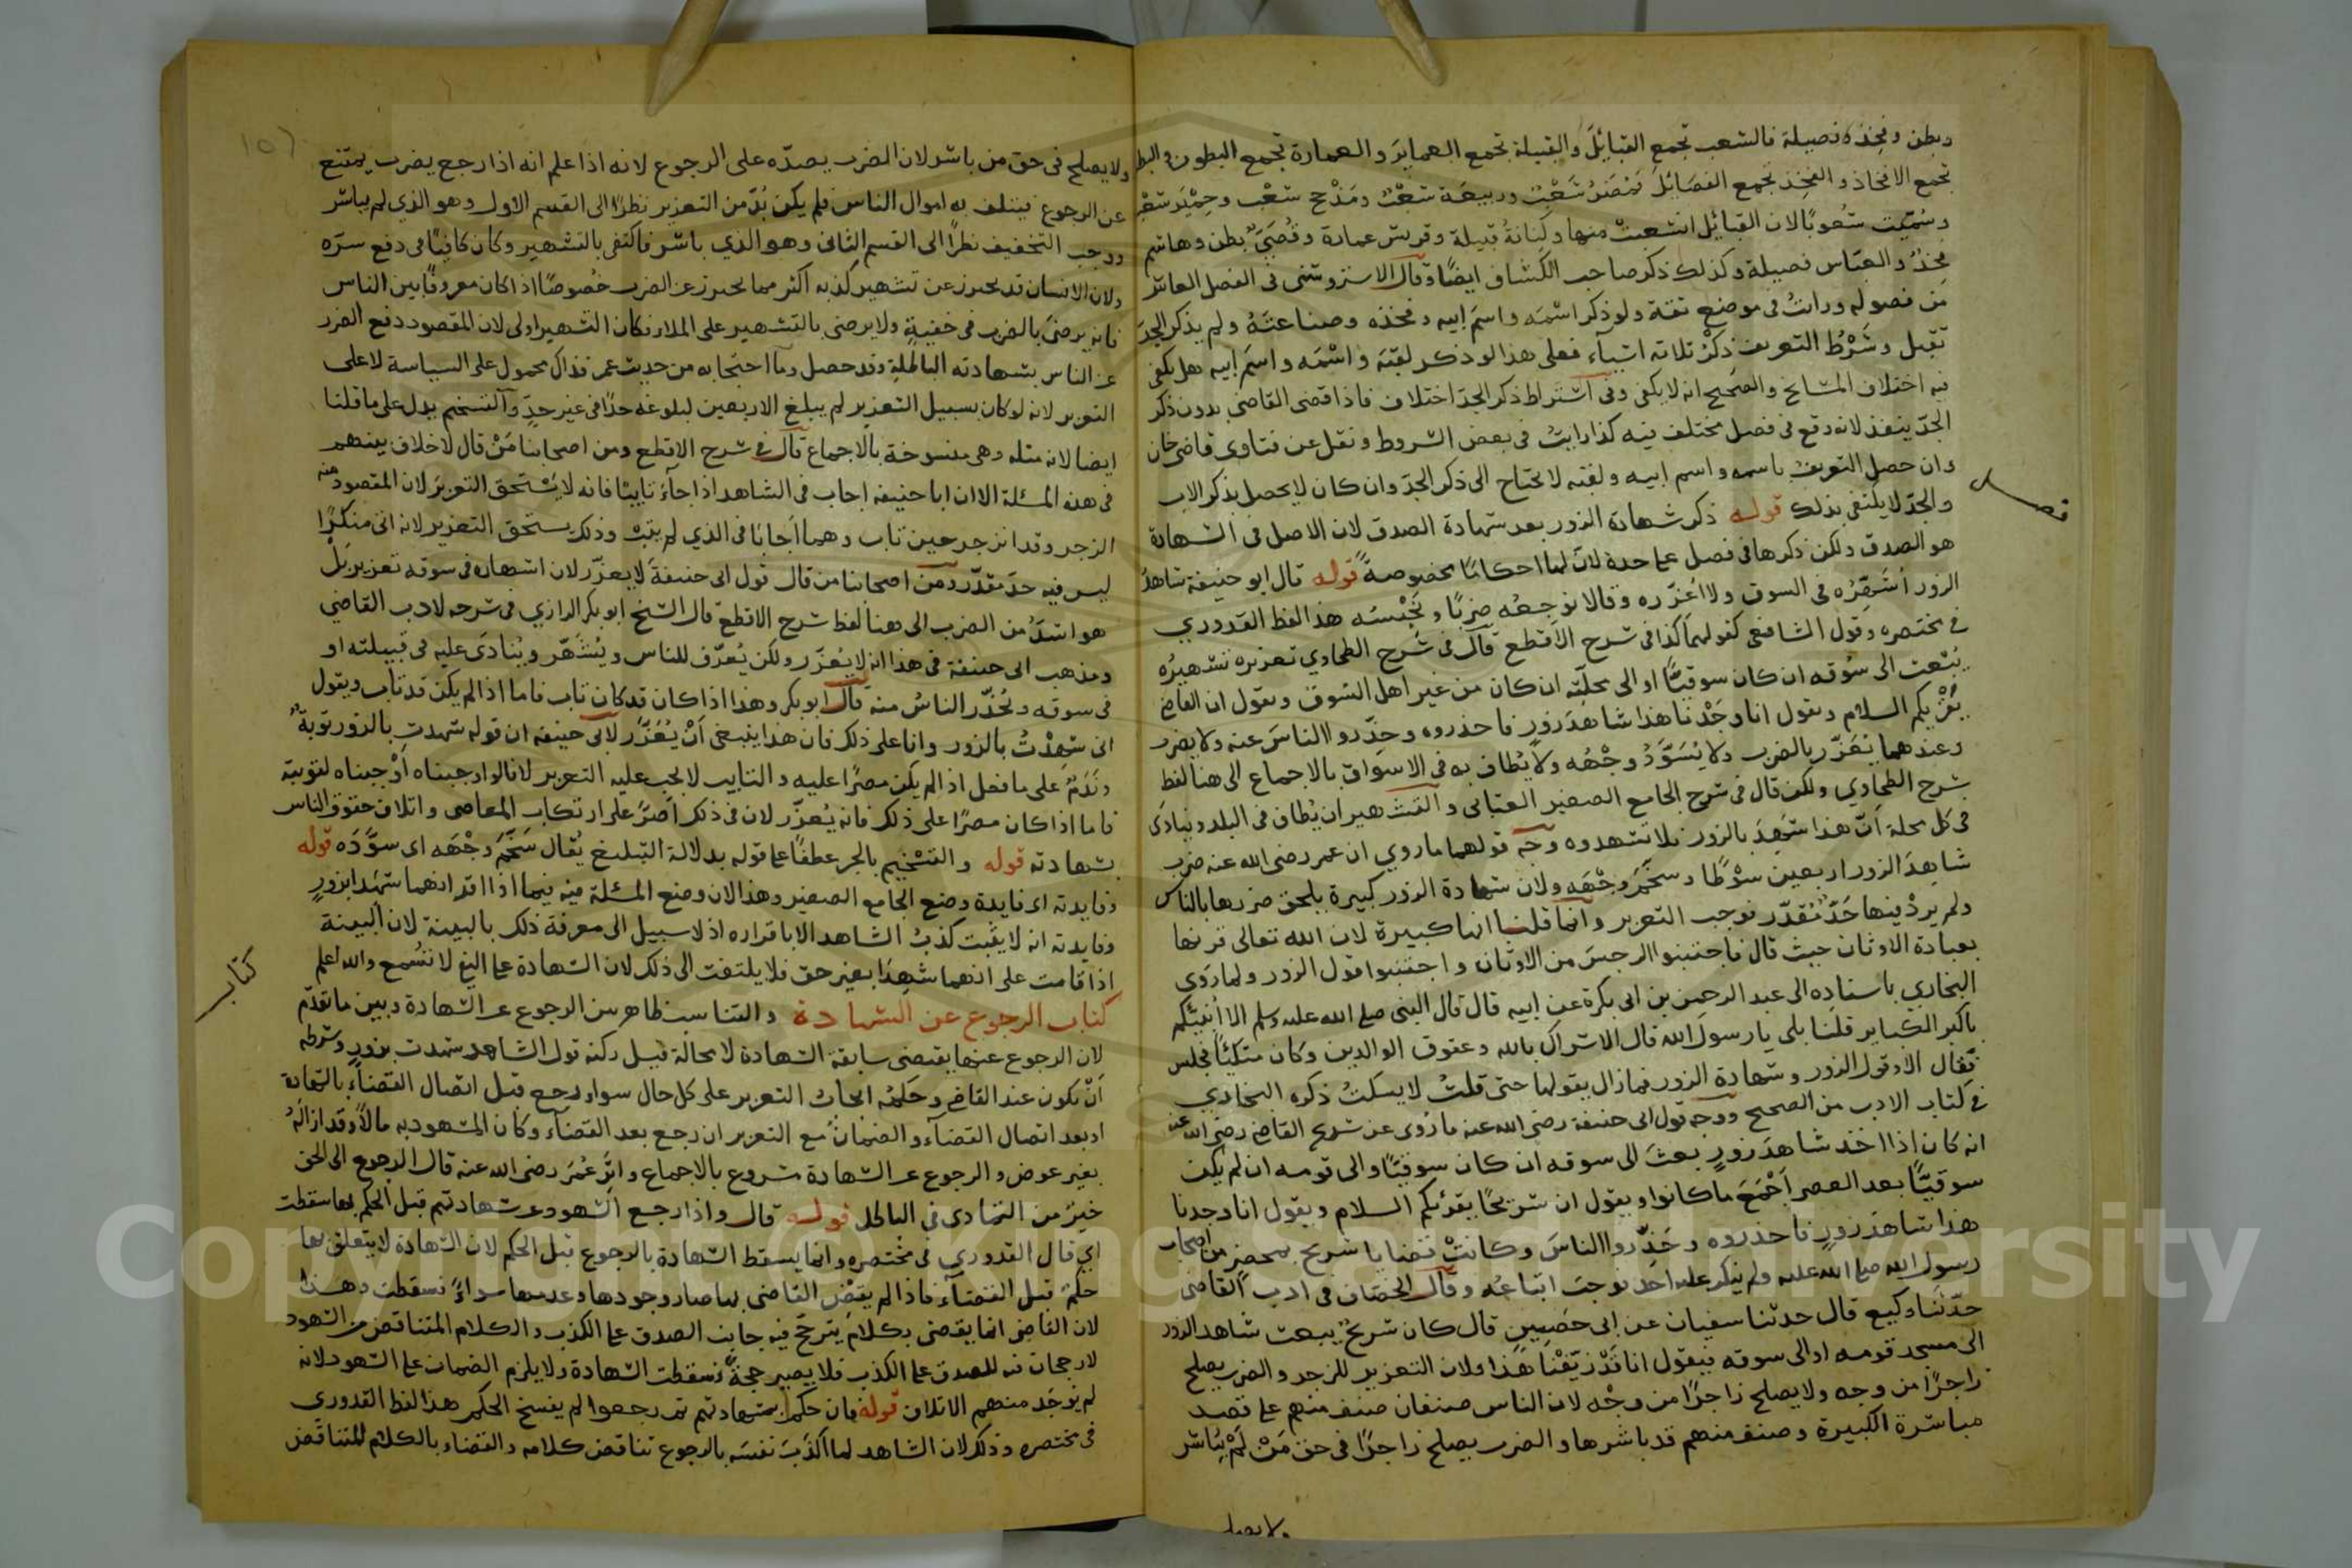 وبطن وفخذ وفصيلة فالشعب تجمع القبائل والقبيلة تجمع العماير والعمارة تجمع البطون والبطن
تجمع الافخاذ والفخذ تجمع الفصائل فمضر شعب وربيعة شعب ومذحج شعب وحمير شعب
وسميت شعوبا لان القبائل انشعبت منها وكنانة قبيلة وقريش عمارة وقصي بطن وهاشم
فخذ والعباس فصيلة وكذلك ذكر صاحب الكشاف ايضا وقال الاستروشنى فى الفصل العاشر
من فصوله ورايت فى موضع ثقة ولو ذكر اسمه واسم ابيه وفخذه وصناعته ولم يذكر الجد
تقبل وشرط التعريف ذكر ثلاثة اشياء فعلى هذا لو ذكر لقبه واسمه واسم ابيه هل يكفى
فيه اختلاف المشايخ والصحيح انه لا يكفى وفى اشتراط ذكر الجد اختلاف فاذا قضى القاضى بدون ذكر
الجد ينفذ لانه وقع فى فصل مختلف فيه كذا رايت فى بعض الشروط ونقل عن فتاوى قاضى خان
وان حصل التعريف باسمه واسم ابيه ولقبه لا يحتاج الى ذكر الجد وان كان لا يحصل بذكر الاب
والجد لا يكتفى بذلك قوله ذكر شهادة الزور بعد شهادة الصدق لان الاصل فى الشهادة
فصل
هو الصدق ولكن ذكرها فى فصل على حدة لان لها احكاما مخصوصة قوله قال ابو حنيفة شاهد
الزور اشهره فى السوق ولا اعزره وقالا نوجعه ضربا ونحبسه هذا لفظ القدوري
فى مختصره وقول الشافعى كقولهما كذا فى شرح الاقطع قال فى شرح الطحاوي تعزيره تشهيره
يبعث الى سوقه ان كان سوقيا او الى محلته ان كان من غير اهل السوق ويقول ان القاضى
يقريكم السلام ويقول انا وجدنا هذا شاهد زور فاحذروه وحذروا الناس عنه ولا يضرب
وعندهما يعزر بالضرب ولا يسود وجهه ولا يطاف به فى الاسواق بالاجماع الى هنا لفظ
شرح الطحاوي ولكن قال فى شرح الجامع الصغير العتابى والتشهير ان يطاف فى البلد وينادى
فى كل محلة ان هذا شهد بالزور فلا تشهدوه وجه قولهما ما روي ان عمر رضى الله عنه ضرب
شاهد الزور اربعين سوطا وسخم وجهه ولان شهادة الزور كبيرة يلحق ضررها بالناس
ولم يرد فيها حد مقدر فوجب التعزير وانما قلنا انها كبيرة لان الله تعالى قرنها
بعبادة الاوثان حيث قال فاجتنبوا الرجس من الاوثان واجتنبوا قول الزور ولما روى
البخاري باسناده الى عبد الرحمن بن ابى بكرة عن ابيه قال قال النبى صلى الله عليه وسلم الا انبئكم
باكبر الكباير قلنا بلى يا رسول الله قال الاشراك بالله وعقوق الوالدين وكان متكئا فجلس
فقال الا وقول الزور وشهادة الزور فما زال يقولها حتى قلت لا يسكت ذكره البخاري
فى كتاب الادب من الصحيح ووجه قول ابى حنيفة رضى الله عنه ما روى عن شريح القاضى رضى الله عنه
انه كان اذا اخذ شاهد زور بعث الى سوقه ان كان سوقيا والى قومه ان لم يكن
سوقيا بعد العصر اجمع ما كانوا ويقول ان شريحا يقرئكم السلام ويقول انا وجدنا
هذا شاهد زور فاحذروه وحذروا الناس وكانت قضايا شريح بمحضر من اصحاب
رسول الله صلى الله عليه ولم ينكر عليه احد فوجب اتباعه وقال الخصاف فى ادب القاضى
حدثنا وكيع قال حدثنا سفيان عن ابى حصين قال كان شريح يبعث شاهد الزور
الى مسجد قومه او الى سوقه فيقول انا قد زيفنا هذا ولان التعزير للزجر والضرب يصلح
زاجرا من وجه ولا يصلح زاجرا من وجه لان الناس صنفان صنف منهم على قصد
مباشرة الكبيرة وصنف منهم قد باشرها والضرب يصلح زاجرا فى حق من لم يباشر
ولا يصلح
ولا يصلح فى حق من باشر لان الضرب يصده على الرجوع لانه اذا علم انه اذا رجع يضرب يمتنع
عن الرجوع فيتلف به اموال الناس فلم يكن بد من التعزير نظرا الى القسم الاول وهو الذي لم يباشر
ووجب التخفيف نظرا الى القسم الثانى وهو الذي باشر فاكتفى بالتشهير وكان كافيا فى دفع شره
ولان الانسان قد يحترز عن تشهير كذبه اكثر مما يحترز عن الضرب خصوصا اذا كان معروفا بين الناس
فانه يرضى بالضرب فى خفية ولا يرضى بالتشهير على الملا فكان التشهير اولى لان المقصود دفع الضرر
عن الناس بشهادته الباطلة وقد حصل وما احتجا به من حديث عمر فذاك محمول على السياسة لا على
التعزير لانه لو كان بسبيل التعزير لم يبلغ الاربعين لبلوغه حدا فى غير حد والتسخيم يدل على ما قلنا
ايضا لانه مثلة وهى منسوخة بالاجماع قال فى شرح الاقطع ومن اصحابنا من قال لا خلاف بينهم
فى هذه المسئلة الا ان ابا حنيفة اجاب فى الشاهد اذا جاء تايبا فانه لا يستحق التعزير لان المقصود منه
الزجر وقد انزجر حين تاب وهما اجابا فى الذي لم يتب وذلك يستحق التعزير لانه اتى منكرا
ليس فيه حد مقدر ومن اصحابنا من قال قول ابى حنيفة لا يعزر لان اشهاره فى سوقه تعزير بل
هو اشد من الضرب الى هنا لفظ شرح الاقطع قال الشيخ ابو بكر الرازي فى شرحه لادب القاضي
ومذهب ابى حنيفة فى هذا انه لا يعزر ولكن يعرف للناس ويشهر وينادى عليه فى قبيلته او
فى سوقه ويحذر الناس منه قال ابو بكر وهذا اذا كان قد كان تاب فاما اذا لم يكن قد تاب ويقول
انى شهدت بالزور وانا على ذلك فان هذا ينبغى ان يعزر لابى حنيفة ان قوله شهدت بالزور توبة
وندم على ما فعل اذا لم يكن مصرا عليه والتايب لا يجب عليه التعزير لانا لو اوجبناه اوجبناه لتوبته
فاما اذا كان مصرا على ذلك فانه يعزر لان فى ذلك اصر على ارتكاب المعاصى واتلاف حقوق الناس
بشهادته قوله والتسخيم بالجر عطفا على قوله بدلالة التبليغ يقال سخم وجهه اى سوده قوله
وفايدته اى فايدة وضع الجامع الصغير وهذا لان وضع المسئلة فيه فيما اذا اقر انهما شهدا بزور
وفايدته انه لا يثبت كذب الشاهد الا باقراره اذ لا سبيل الى معرفة ذلك بالبينة لان البينة
اذا قامت على انهما شهدا بغير حق فلا يلتفت الى ذلك لان الشهادة على النفى لا تسمع والله اعلم
كتاب
كتاب الرجوع عن الشهادة والتناسب ظاهر بين الرجوع عن الشهادة وبين ما تقدم
لان الرجوع عنها يقتضى سابقة الشهادة لا محالة قيل ركنه قول الشاهد شهدت بزور وشرطه
ان يكون عند القاضى وحكمه ايجاب التعزير على كل حال سواء رجع قبل اتصال القضاء بالشهادة
او بعد اتصال القضاء والضمان مع التعزير ان رجع بعد القضاء وكان المشهود به مالا وقد ازاله
بغير عوض والرجوع عن الشهادة مشروع بالاجماع وان عمر رضى الله عنه قال الرجوع الى الحق
خير من التمادى فى الباطل قوله قال واذا رجع الشهود عن شهادتهم قبل الحكم بها سقطت
اي قال القدوري فى مختصره وانما يسقط الشهادة بالرجوع قبل الحكم لان الشهادة لا يتعلق بها
حكم قبل القضاء فاذا لم يقض القاضى بها صار وجودها وعدمها سواء فسقطت وهذا
لان القاضى انما يقضى بكلام يترجح فيه جانب الصدق على الكذب والكلام المتناقض من الشهود
لا رجحان فيه للصدق على الكذب فلا يصير حجة فسقطت الشهادة ولا يلزم الضمان على الشهود لانه
لم يوجد منهم الاتلاف قوله فان حكم بشهادتهم ثم رجعوا لم يفسخ الحكم هذا لفظ القدوري
فى مختصره وذلك لان الشاهد لما اكذب نفسه بالرجوع تناقض كلامه والقضاء بالكلام المتناقض
Copyright © King Saud University